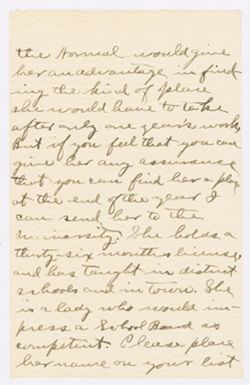 the Normal would give
her an advantage in find-
ing the kind of place
she would have to take
after only one year's work,
But if you feel that you can
give her any assurance
that you can find her a place
at the end of the year I
can send her to the
University. She holds a
thirty-six months license,
and has taught in district
schools and in town. She
is a lady who would im-
press a School Board as
competent. Please place
her name on your list